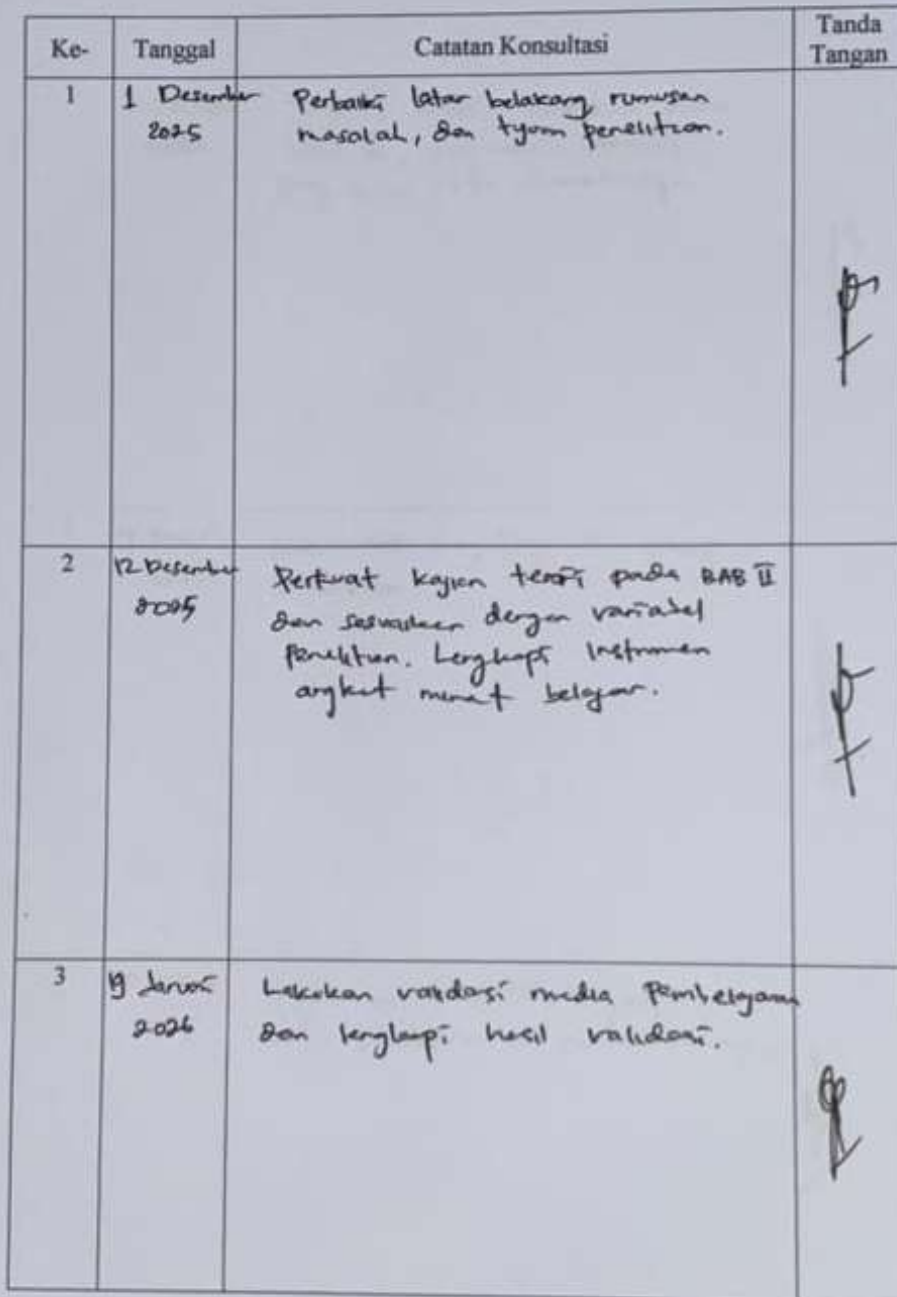 Ke-
Tanggal
Catatan Konsultasi
Tanda
Tangan
1
1 Desember
2025
Perbaiki latar belakang, rumusan
masalah, dan tujuan penelitian.
2
12 Desember
2025
Perkuat kajian teori pada BAB II
dan sesuaikan dengan variabel
penelitian. Lengkapi instrumen
angket minat belajar.
3
19 Januari
2026
Lakukan validasi media pembelajaran
dan lengkapi hasil validasi.